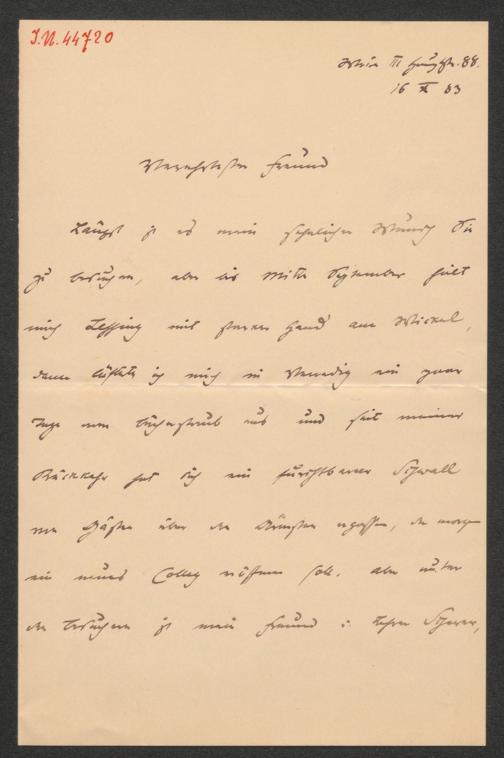 J.N. 44720
Wien III Hauptstr. 88.
16 X 83
Verehrtester Freund
Längst ist es mein sehnlicher Wunsch Sie
zu besuchen, aber bis Mitte September hielt
mich Lessing mit starker Hand am Wickel,
dann lüftete ich mich in Venedig ein paar
Tage vom Bücherstaub aus und seit meiner
Rückkehr hat sich ein furchtbarer Schwall
von Gästen über den Ärmsten ergossen, der morgen
ein neues Colleg eröffnen soll. Aber unter
den Besuchern ist mein Freund u. Lehrer Scherer,